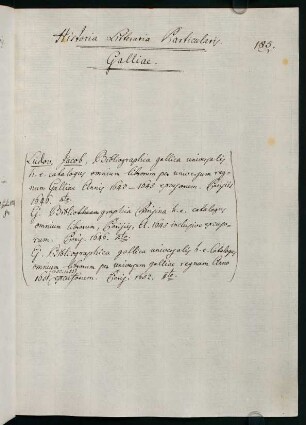 Historia Litteraria Particularis
185.
Galliae.
Ludov. Jacob, Bibliographia gallica universalis
h. e. catalogus omnium librorum per universum reg-
num Galliae Annis 1643–1645 excusorum. Parisiis
1646. 4to.
Ej. Bibliographia Parisina h. e. catalogus
omnium librorum, Parisiis, 1645 inclusive excuso-
rum. Paris. 1646. 4to.
Ej. Bibliographia gallica universalis h. e. Catalogus
omnium librorum per universum galliae regnum Anno
1651. excusorum. Paris. 1652. 4to.